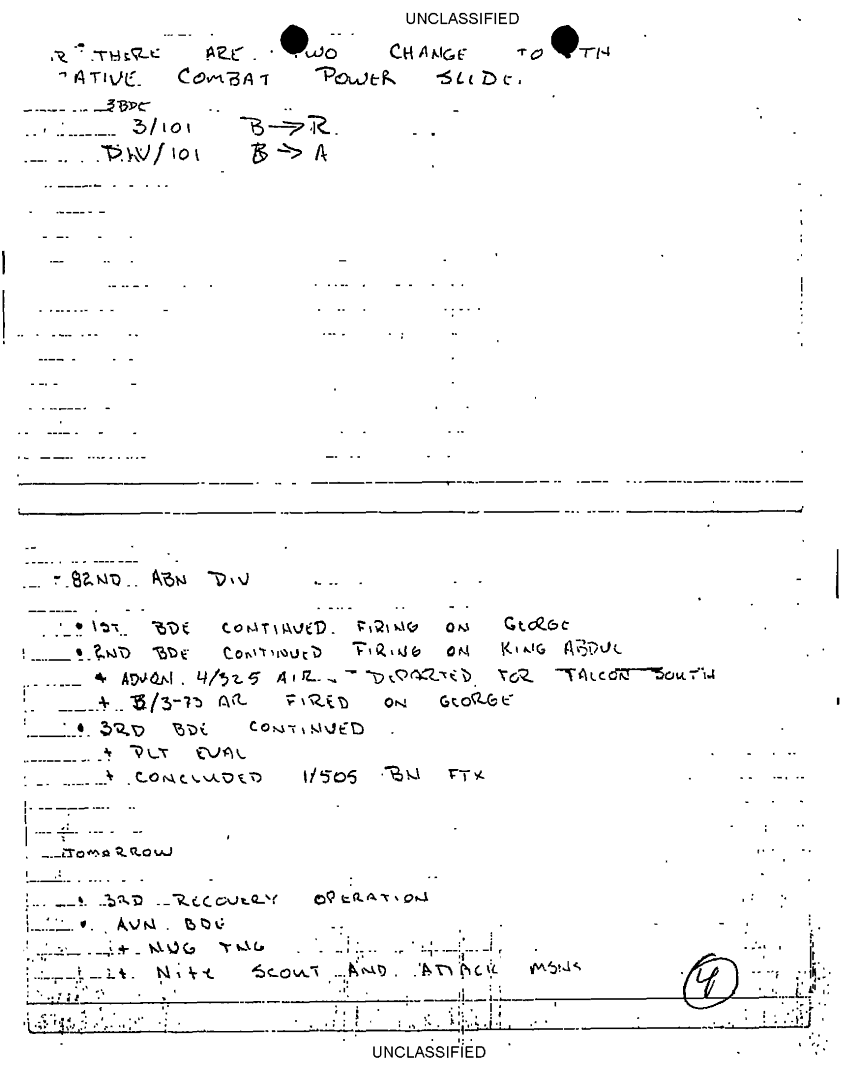 UNCLASSIFIED
THERE ARE TWO CHANGE TO TH
ATIVE COMBAT POWER SLIDE.
3BDE
3/101 B→R
DIV/101 B→A
82ND ABN DIV
• 1ST BDE CONTINUED FIRING ON GEORGE
• 2ND BDE CONTINUED FIRING ON KING ABDUL
+ ADVON 4/325 AIR - DEPARTED FOR TALCON SOUTH
+ B/3-73 AR FIRED ON GEORGE
• 3RD BDE CONTINUED
+ PLT EVAL
+ CONCLUDED 1/505 BN FTX
TOMORROW
• 3RD RECOVERY OPERATION
• AVN BDE
+ NVG TNG
+ NITE SCOUT AND ATTACK MSNS
4
UNCLASSIFIED